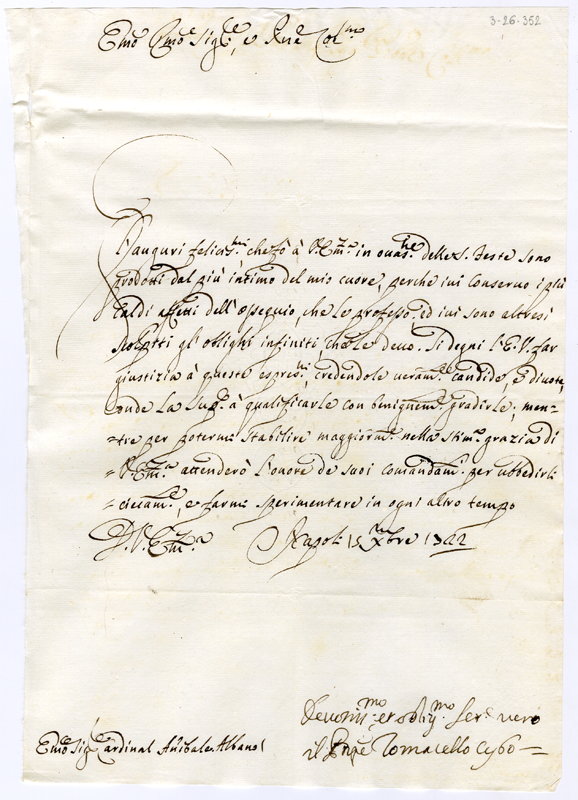 3-26-352
Emo Rmo Sig.re, e Pne Col.mo
Gl'auguri felicis.mi, che fò à V.Em.za in ques.te delle S. feste sono
prodotti dal più intimo del mio cuore, perche ivi conservo i più
caldi affetti dell'ossequio, che le professo, ed ivi sono altresì
scolpiti gl'oblighi infiniti, che le devo. Si degni l'E.V. far
giustizia à queste espres.ni, credendole veram.te candide, e divote,
onde La sup.co à qualificarle con benignam.te gradirle; men-
-tre per potermi stabilire maggiorm.te nella stim.ma grazia di
V.Em.za attenderò l'onore de suoi comandam.ti per ubbedirli
ciecam.te, e farmi sperimentare in ogni altro tempo
D. V. Em.za Napoli 15 Xbre 1722
Devotis.mo et oblig.mo Ser.e vero
il Pnpe Tomacello Cybo
Emo Sig. Cardinal Anibale Albani